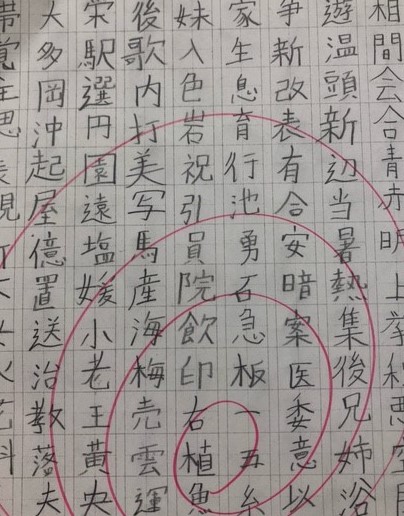 相間会合青赤明上挙秋悪空
遊温頭新辺当暑熱集後兄姉浴
争新改表有合安暗案医委意以
家生息育行池勇石急板一五糸
妹入色岩祝引員院飲印右植魚
後歌内打美写馬産海梅売雲運
栄駅選円園遠塩媛小老王黄央
大多岡沖起屋億置送治教落夫
帯覚全思